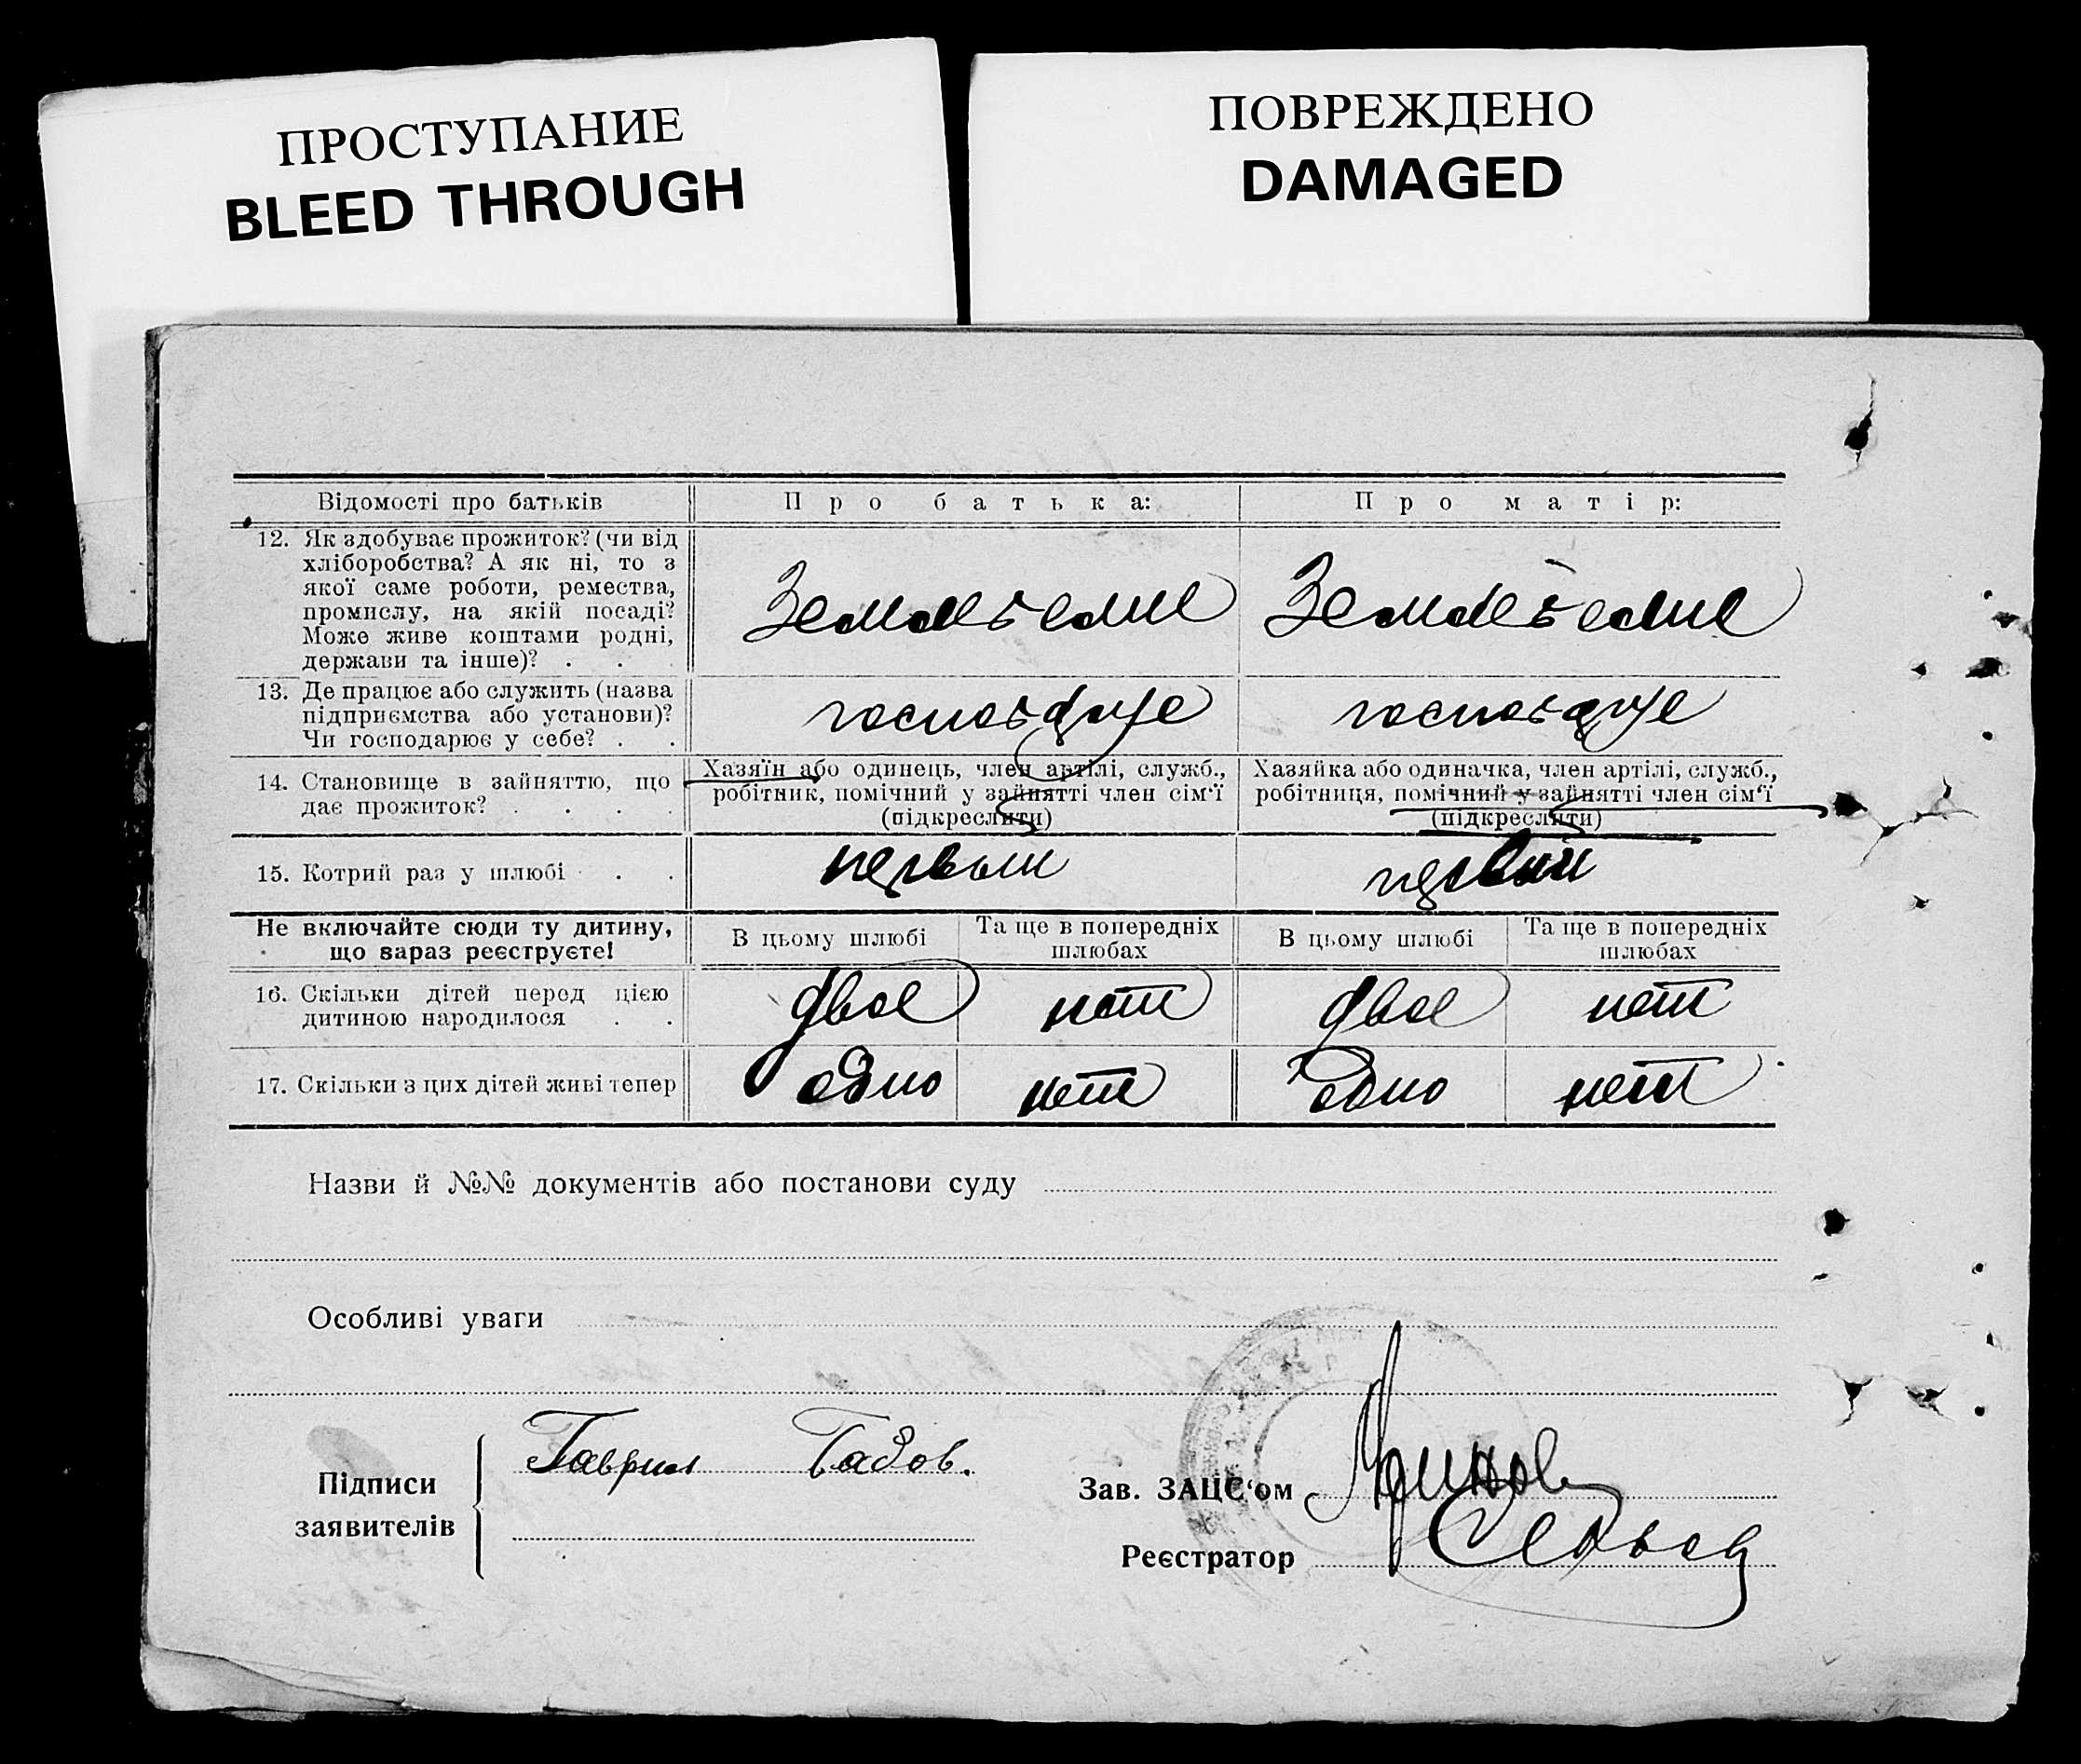 ПРОСТУПАНИЕ
BLEED THROUGH
ПОВРЕЖДЕНО
DAMAGED
Відомості про батьків
Про батька:
Про матір:
12. Як здобуває прожиток? (чи від
хліборобства? А як ні, то з
якої саме роботи, ремества,
промислу, на якій посаді?
Може живе коштами родні,
держави та інше)? . .
13. Де працює або служить (назва
підприємства або установи)?
Чи господарює у себе? . .
14. Становище в зайняттю, що
дає прожиток? . . . .
Хазяїн або одинець, член артілі, служб.,
робітник, помічний у зайнятті член сім'ї
(підкреслити)
Хазяйка або одиначка, член артілі, служб.,
робітниця, помічний у зайнятті член сім'ї
(підкреслити)
15. Котрий раз у шлюбі . .
первый
первый
Не включайте сюди ту дитину,
що зараз реєструєте!
В цьому шлюбі
Та ще в попередніх
шлюбах
В цьому шлюбі
Та ще в попередніх
шлюбах
16. Скільки дітей перед цією
дитиною народилося . .
двое
нет
двое
нет
17. Скільки з цих дітей живі тепер
одно
нет
одно
нет
Назви й №№ документів або постанови суду
Особливі уваги
Підписи
заявителів
Гаврил Гадов.
Зав. ЗАЦС'ом
Реєстратор